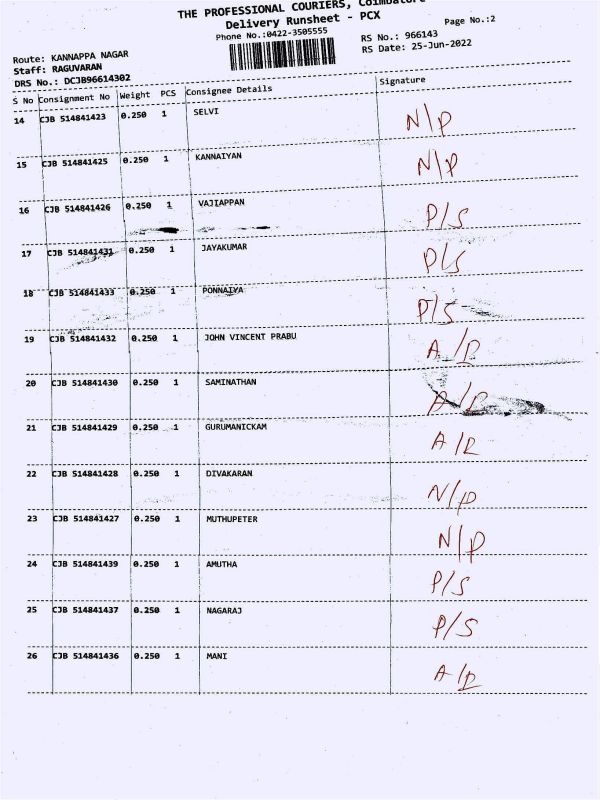 THE PROFESSIONAL COURIERS, Coimbatore
Delivery Runsheet - PCX
Phone No.:0422-3505555
Page No.:2
Route: KANNAPPA NAGAR
RS No.: 966143
Staff: RAGUVARAN
RS Date: 25-Jun-2022
DRS No.: DCJB96614302
S No Consignment No Weight PCS Consignee Details Signature
14 CJB 514841423 0.250 1 SELVI N/P
15 CJB 514841425 0.250 1 KANNAIYAN N/P
16 CJB 514841426 0.250 1 VAJIAPPAN P/S
17 CJB 514841431 0.250 1 JAYAKUMAR P/S
18 CJB 514841433 0.250 1 PONNAIYA P/S
19 CJB 514841432 0.250 1 JOHN VINCENT PRABU A/R
20 CJB 514841430 0.250 1 SAMINATHAN A/R
21 CJB 514841429 0.250 1 GURUMANICKAM A/R
22 CJB 514841428 0.250 1 DIVAKARAN N/P
23 CJB 514841427 0.250 1 MUTHUPETER N/P
24 CJB 514841439 0.250 1 AMUTHA P/S
25 CJB 514841437 0.250 1 NAGARAJ P/S
26 CJB 514841436 0.250 1 MANI A/R